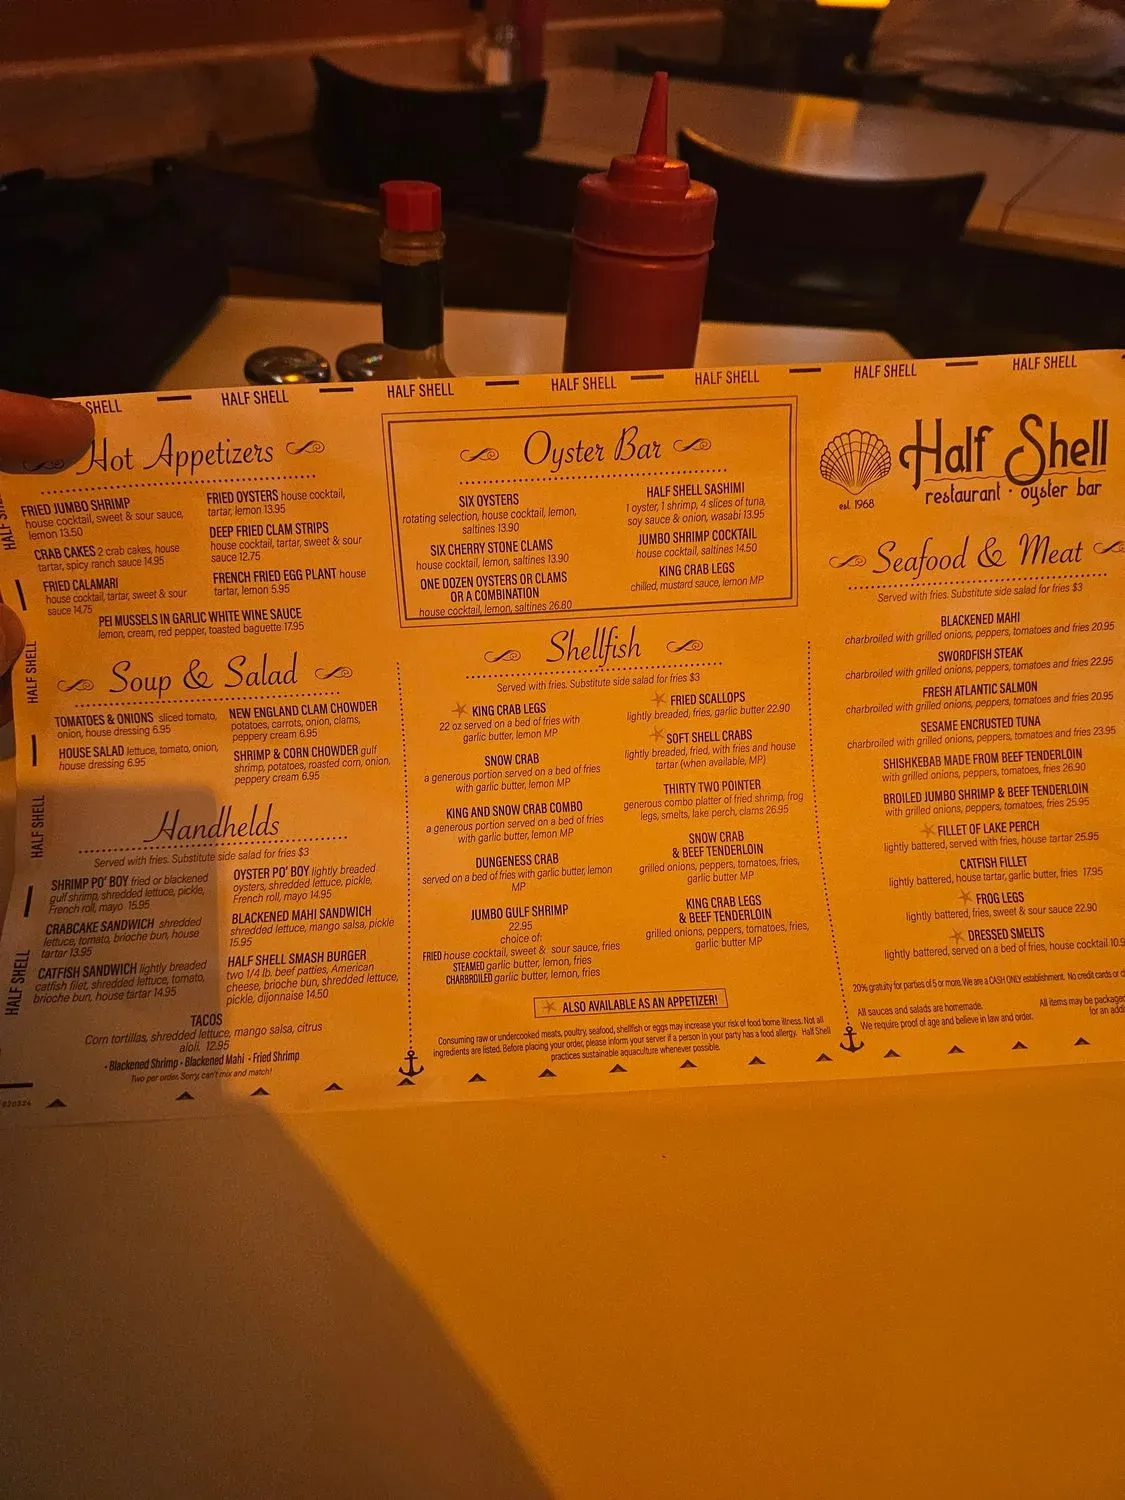 SHELL HALF SHELL HALF SHELL HALF SHELL HALF SHELL HALF SHELL HALF SHELL
HALF SHELL
HALF SHELL
HALF SHELL
Hot Appetizers
FRIED JUMBO SHRIMP
house cocktail, sweet & sour sauce,
lemon 13.50
CRAB CAKES 2 crab cakes, house
tartar, spicy ranch sauce 14.95
FRIED CALAMARI
house cocktail, tartar, sweet & sour
sauce 14.75
FRIED OYSTERS house cocktail,
tartar, lemon 13.95
DEEP FRIED CLAM STRIPS
house cocktail, tartar, sweet & sour
sauce 12.75
FRENCH FRIED EGG PLANT house
tartar, lemon 5.95
PEI MUSSELS IN GARLIC WHITE WINE SAUCE
lemon, cream, red pepper, toasted baguette 17.95
Soup & Salad
TOMATOES & ONIONS sliced tomato,
onion, house dressing 6.95
HOUSE SALAD lettuce, tomato, onion,
house dressing 6.95
NEW ENGLAND CLAM CHOWDER
potatoes, carrots, onion, clams,
peppery cream 6.95
SHRIMP & CORN CHOWDER gulf
shrimp, potatoes, roasted corn, onion,
peppery cream 6.95
Handhelds
Served with fries. Substitute side salad for fries $3
SHRIMP PO' BOY fried or blackened
gulf shrimp, shredded lettuce, pickle,
French roll, mayo 15.95
CRABCAKE SANDWICH shredded
lettuce, tomato, brioche bun, house
tartar 13.95
CATFISH SANDWICH lightly breaded
catfish filet, shredded lettuce, tomato,
brioche bun, house tartar 14.95
OYSTER PO' BOY lightly breaded
oysters, shredded lettuce, pickle,
French roll, mayo 14.95
BLACKENED MAHI SANDWICH
shredded lettuce, mango salsa, pickle
15.95
HALF SHELL SMASH BURGER
two 1/4 lb. beef patties, American
cheese, brioche bun, shredded lettuce,
pickle, dijonnaise 14.50
TACOS
Corn tortillas, shredded lettuce, mango salsa, citrus
aioli. 12.95
• Blackened Shrimp • Blackened Mahi • Fried Shrimp
Two per order. Sorry, can't mix and match!
Oyster Bar
SIX OYSTERS
rotating selection, house cocktail, lemon,
saltines 13.90
SIX CHERRY STONE CLAMS
house cocktail, lemon, saltines 13.90
ONE DOZEN OYSTERS OR CLAMS
OR A COMBINATION
house cocktail, lemon, saltines 26.80
HALF SHELL SASHIMI
1 oyster, 1 shrimp, 4 slices of tuna,
soy sauce & onion, wasabi 13.95
JUMBO SHRIMP COCKTAIL
house cocktail, saltines 14.50
KING CRAB LEGS
chilled, mustard sauce, lemon MP
Shellfish
Served with fries. Substitute side salad for fries $3
KING CRAB LEGS
22 oz served on a bed of fries with
garlic butter, lemon MP
SNOW CRAB
a generous portion served on a bed of fries
with garlic butter, lemon MP
KING AND SNOW CRAB COMBO
a generous portion served on a bed of fries
with garlic butter, lemon MP
DUNGENESS CRAB
served on a bed of fries with garlic butter, lemon
MP
JUMBO GULF SHRIMP
22.95
choice of:
FRIED house cocktail, sweet & sour sauce, fries
STEAMED garlic butter, lemon, fries
CHARBROILED garlic butter, lemon, fries
FRIED SCALLOPS
lightly breaded, fries, garlic butter 22.90
SOFT SHELL CRABS
lightly breaded, fried, with fries and house
tartar (when available, MP)
THIRTY TWO POINTER
generous combo platter of fried shrimp, frog
legs, smelts, lake perch, clams 26.95
SNOW CRAB
& BEEF TENDERLOIN
grilled onions, peppers, tomatoes, fries,
garlic butter MP
KING CRAB LEGS
& BEEF TENDERLOIN
grilled onions, peppers, tomatoes, fries,
garlic butter MP
ALSO AVAILABLE AS AN APPETIZER!
Consuming raw or undercooked meats, poultry, seafood, shellfish or eggs may increase your risk of food borne illness. Not all
ingredients are listed. Before placing your order, please inform your server if a person in your party has a food allergy. Half Shell
practices sustainable aquaculture whenever possible.
Half Shell
restaurant · oyster bar
est. 1968
Seafood & Meat
Served with fries. Substitute side salad for fries $3
BLACKENED MAHI
charbroiled with grilled onions, peppers, tomatoes and fries 20.95
SWORDFISH STEAK
charbroiled with grilled onions, peppers, tomatoes and fries 22.95
FRESH ATLANTIC SALMON
charbroiled with grilled onions, peppers, tomatoes and fries 20.95
SESAME ENCRUSTED TUNA
charbroiled with grilled onions, peppers, tomatoes and fries 23.95
SHISHKEBAB MADE FROM BEEF TENDERLOIN
with grilled onions, peppers, tomatoes, fries 26.90
BROILED JUMBO SHRIMP & BEEF TENDERLOIN
with grilled onions, peppers, tomatoes, fries 25.95
FILLET OF LAKE PERCH
lightly battered, served with fries, house tartar 25.95
CATFISH FILLET
lightly battered, house tartar, garlic butter, fries 17.95
FROG LEGS
lightly battered, fries, sweet & sour sauce 22.90
DRESSED SMELTS
lightly battered, served on a bed of fries, house cocktail 10.9
20% gratuity for parties of 5 or more. We are a CASH ONLY establishment. No credit cards or
All sauces and salads are homemade.
We require proof of age and believe in law and order.
All items may be package
for an addi